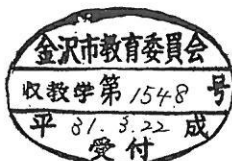 金沢市教育委員会
収教学第1548号
平 31.3.22 成
受付